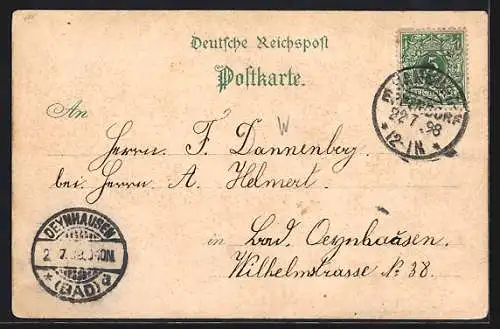 Deutsche Reichspost
Postkarte.
An
W
Herrn F. Dannenberg
bei Herrn A. Helmert.
in Bad Oeynhausen.
Wilhelmstrasse № 38.
DORF
22.7.98
* 12-1N *
5
OEYNHAUSEN
* (BAD) a